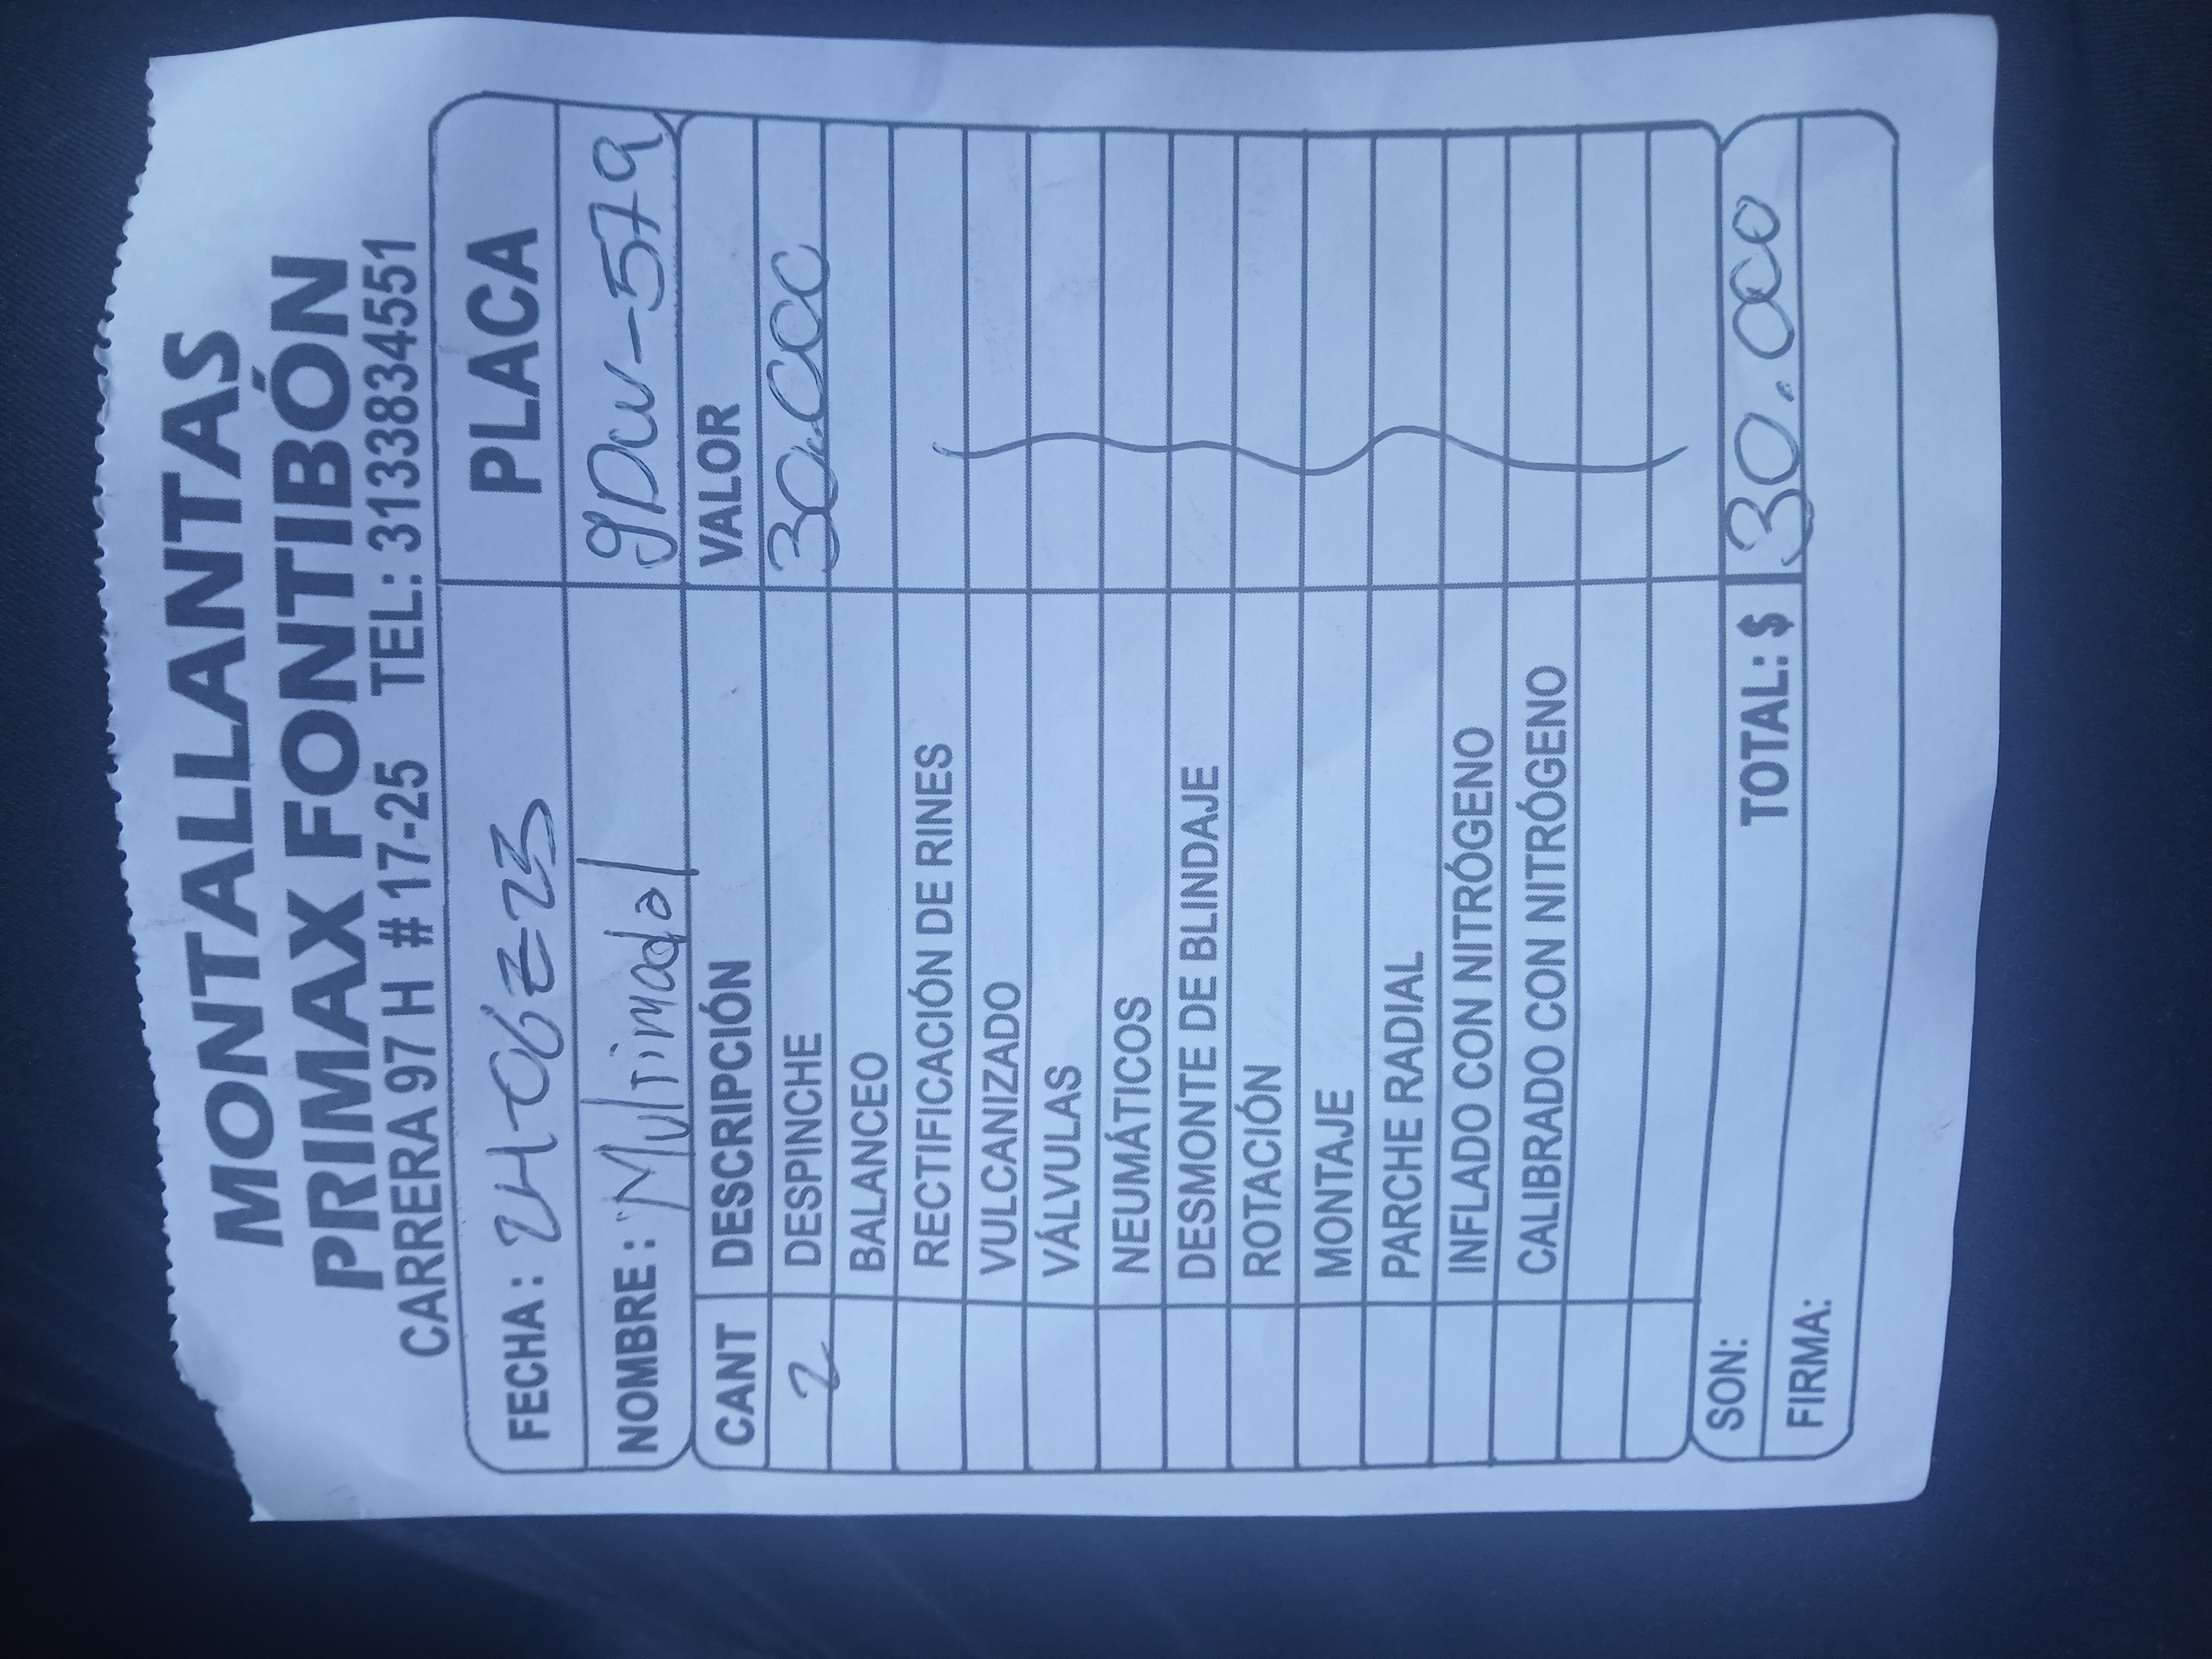 MONTALLANTAS
PRIMAX FONTIBÓN
CARRERA 97 H # 17-25 TEL: 3133834551
FECHA: 24-06-23 PLACA
NOMBRE: Multimodal gDW-579
CANT DESCRIPCIÓN VALOR
2 DESPINCHE 30.000
BALANCEO
RECTIFICACIÓN DE RINES
VULCANIZADO
VÁLVULAS
NEUMÁTICOS
DESMONTE DE BLINDAJE
ROTACIÓN
MONTAJE
PARCHE RADIAL
INFLADO CON NITRÓGENO
CALIBRADO CON NITRÓGENO
SON: TOTAL: $ 30.000
FIRMA: